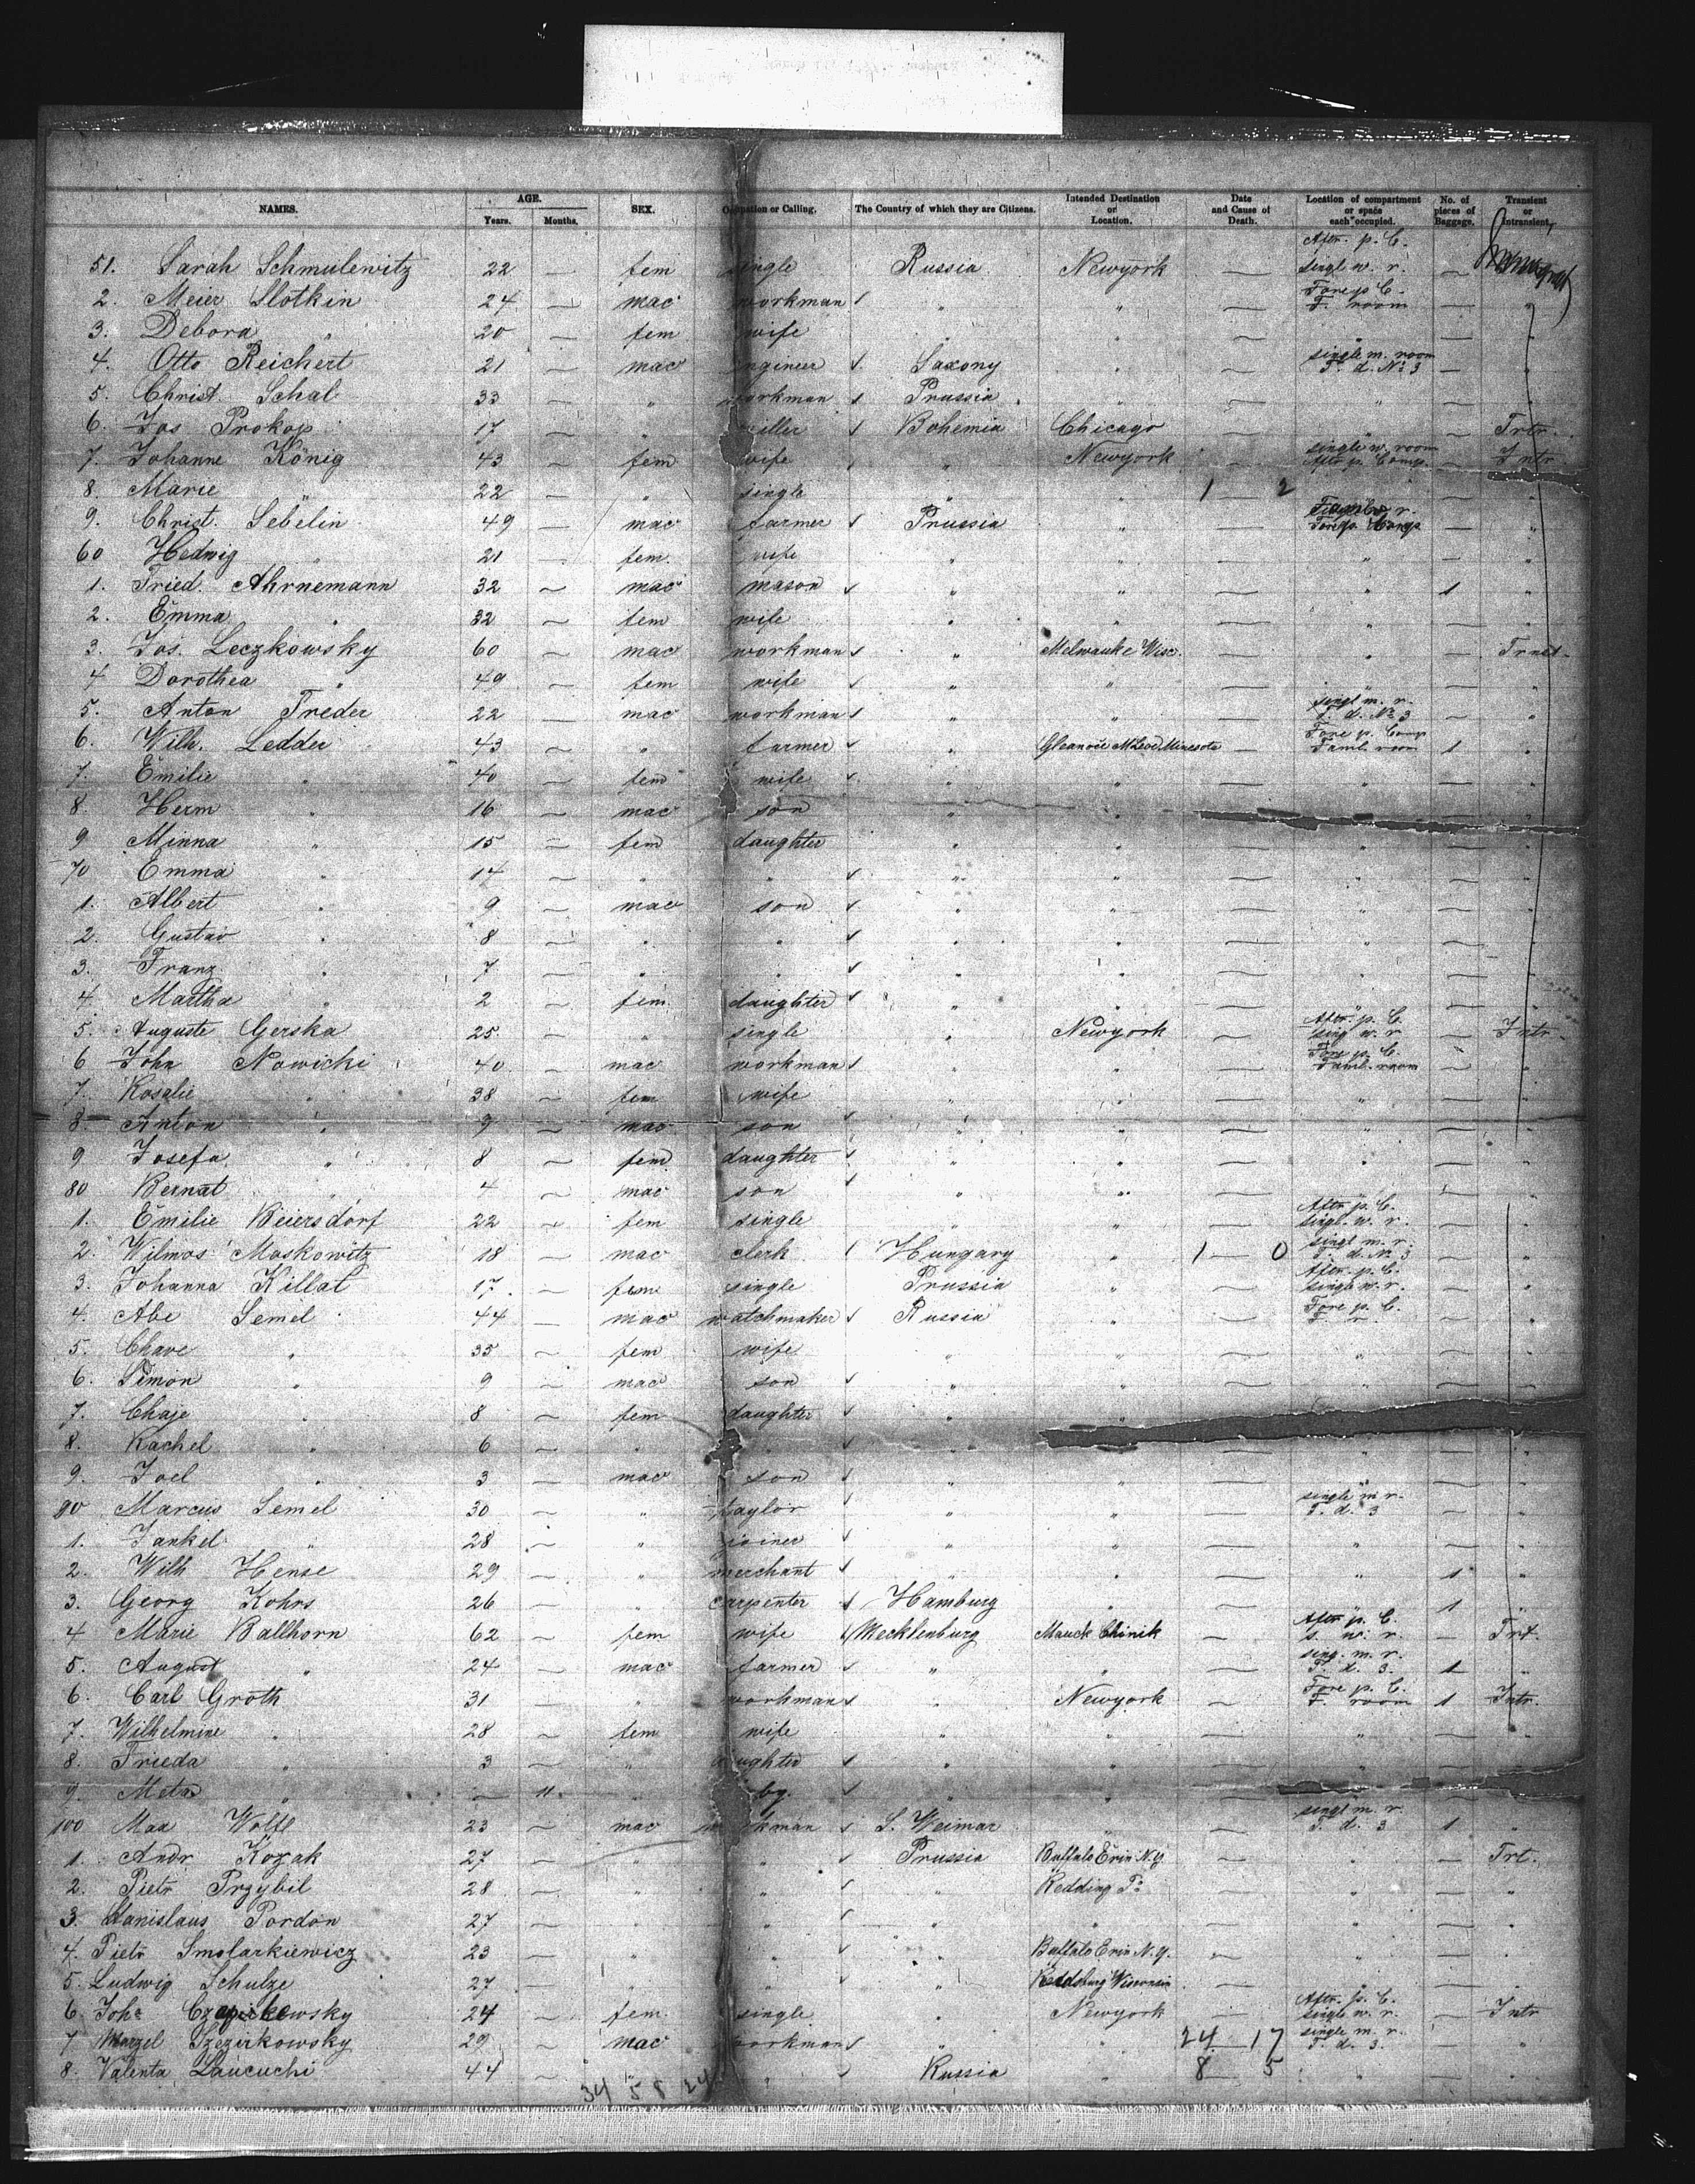 NAMES. AGE. Years. Months. SEX. Occupation or Calling. The Country of which they are Citizens. Intended Destination or Location. Date and Cause of Death. Location of compartment or space each occupied. No. of pieces of Baggage. Transient or Intransient.
51. Sarah Schmulewitz 22 — fem single Russia Newyork — After. p. C. singl w. r. —
2. Meier Slotkin 24 — mac workman " " — Fore p C. F. room — "
3. Debora " 20 — fem wife " " — " — "
4. Otto Reichert 21 — mac engineer Saxony " — single m. room F. d. No 3 — "
5. Christ. Schal 33 — " workman Prussia " — " — "
6. Jos Prokop 17 — " miller Bohemia Chicago — " — Trtr.
7. Johanne König 43 — fem wife " Newyork — single w. room After p. Comp. — Intr
8. Marie " 22 — " single " " 1 — 2 " — "
9. Christ. Sebelin 49 — mac farmer Prussia " — — "
60 Hedwig " 21 — fem. wife " " — " — "
1. Fried. Ahrnemann 32 — mac mason " " — " 1 "
2. Emma " 32 — fem wife " " — " — "
3. Jos. Leczkowsky 60 — mac workman " Melwauke Wisc. — " —
4 Dorothea " 49 — fem wife " " — " — "
5. Anton Freder 22 — mac workman " " — singl m. r. F. d. No 3 — "
6. Wilh. Ledder 43 — " farmer " — Fore p. Comp Famil. room 1 "
7. Emilie " 40 — fem wife " " — " — "
8. Herm " 16 — mac son " "
9 Minna " 15 — fem daughter " " — " — "
70 Emma " 14 — " " " " — " — "
1. Albert " 9 — mac son " " — " — "
2. Gustav " 8 — " " " " — " — "
3. Franz " 7 — " " " " — " — "
4. Martha " 2 — fem. daughter " " — " — "
5. Auguste Gerska 25. — " single " Newyork — After p. C. sing w. r. — Intr.
6 John Nowicki 40. — mac workman " " — Fore p. C. Famil. room — "
7. Rosalie " 38 — fem wife " " — " — "
8. Anton " 9 — mac son " " — " — "
9 Josefa " 8 — fem daughter " " — " — "
80 Bernat " 4 — mac son " " — " — "
1. Emilie Beiersdorf 22 — fem single " " — After p. C. singl. w. r. — "
2. Wilmos Moskowitz 18 — mac clerk Hungary " 1 — 0 singl m. r. F. d. No 3 — "
3. Johanna Killat 17. — fem single Prussia " — After. p. C. single w. r. — "
4. Abe Semel 44 — mac watchmaker Russia " — Fore p. C. F. r. — "
5. Chave " 35 — fem wife " " — " — "
6. Simon " 9 — mac son " " — " — "
7. Chaje " 8 — fem daughter " "
8. Rachel " 6 — " " " — " — "
9. Joel " 3 — mac son " " — " — "
90 Marcus Semel 30 — " taylor " " — single m r. F. d. 3 — "
1. Jankel " 28 — " joiner " " — " — "
2. Wilh Hense 29 — " merchant " " — " 1 "
3. Georg Kohrs 26 — " carpenter Hamburg " — " 1 "
4 Marie Ballhorn 62 — fem wife Mecklenburg Mauck Chinik — After p. C. s. w. r. — Trt.
5. August " 24 — mac farmer " " — sing. m. r. F. d. 3. 1 "
6. Carl Groth 31 — " workman " Newyork — Fore p. C. F. room 1 Intr.
7. Wilhelmine " 28 — fem wife " " — " — "
8. Frieda " 3 — " daughter " " — " — "
9. Meta " — 11. " " " — "
100 Max Wolff 23 — mac workman S. Weimar " — singl m. r. F. d. 3 1 "
1. Andr Kozak 27 — " " Prussia Buffalo Erin N.Y. — " — Trt.
2. Pietr Przybil 28 — " " " Redding Pa — " — "
3. Stanislaus Pordon 27 — " " " " — " — "
4. Pietr Smolarkiewicz 23 — " " " Buffalo Erin N.Y. — " — "
5. Ludwig Schulze 27 — " " " Reedsburg Wisconsin — " — "
6. Joha 24 — fem. single " Newyork — After. p. C. single w. r. — Intr
7 Szezirkowsky 29 — mac workman " " 24 — 17 single m. r. F. d. 3. — "
8. Valenta Laucuchi 44 — " " Russia " 8 5 " — "
34 5 8 24